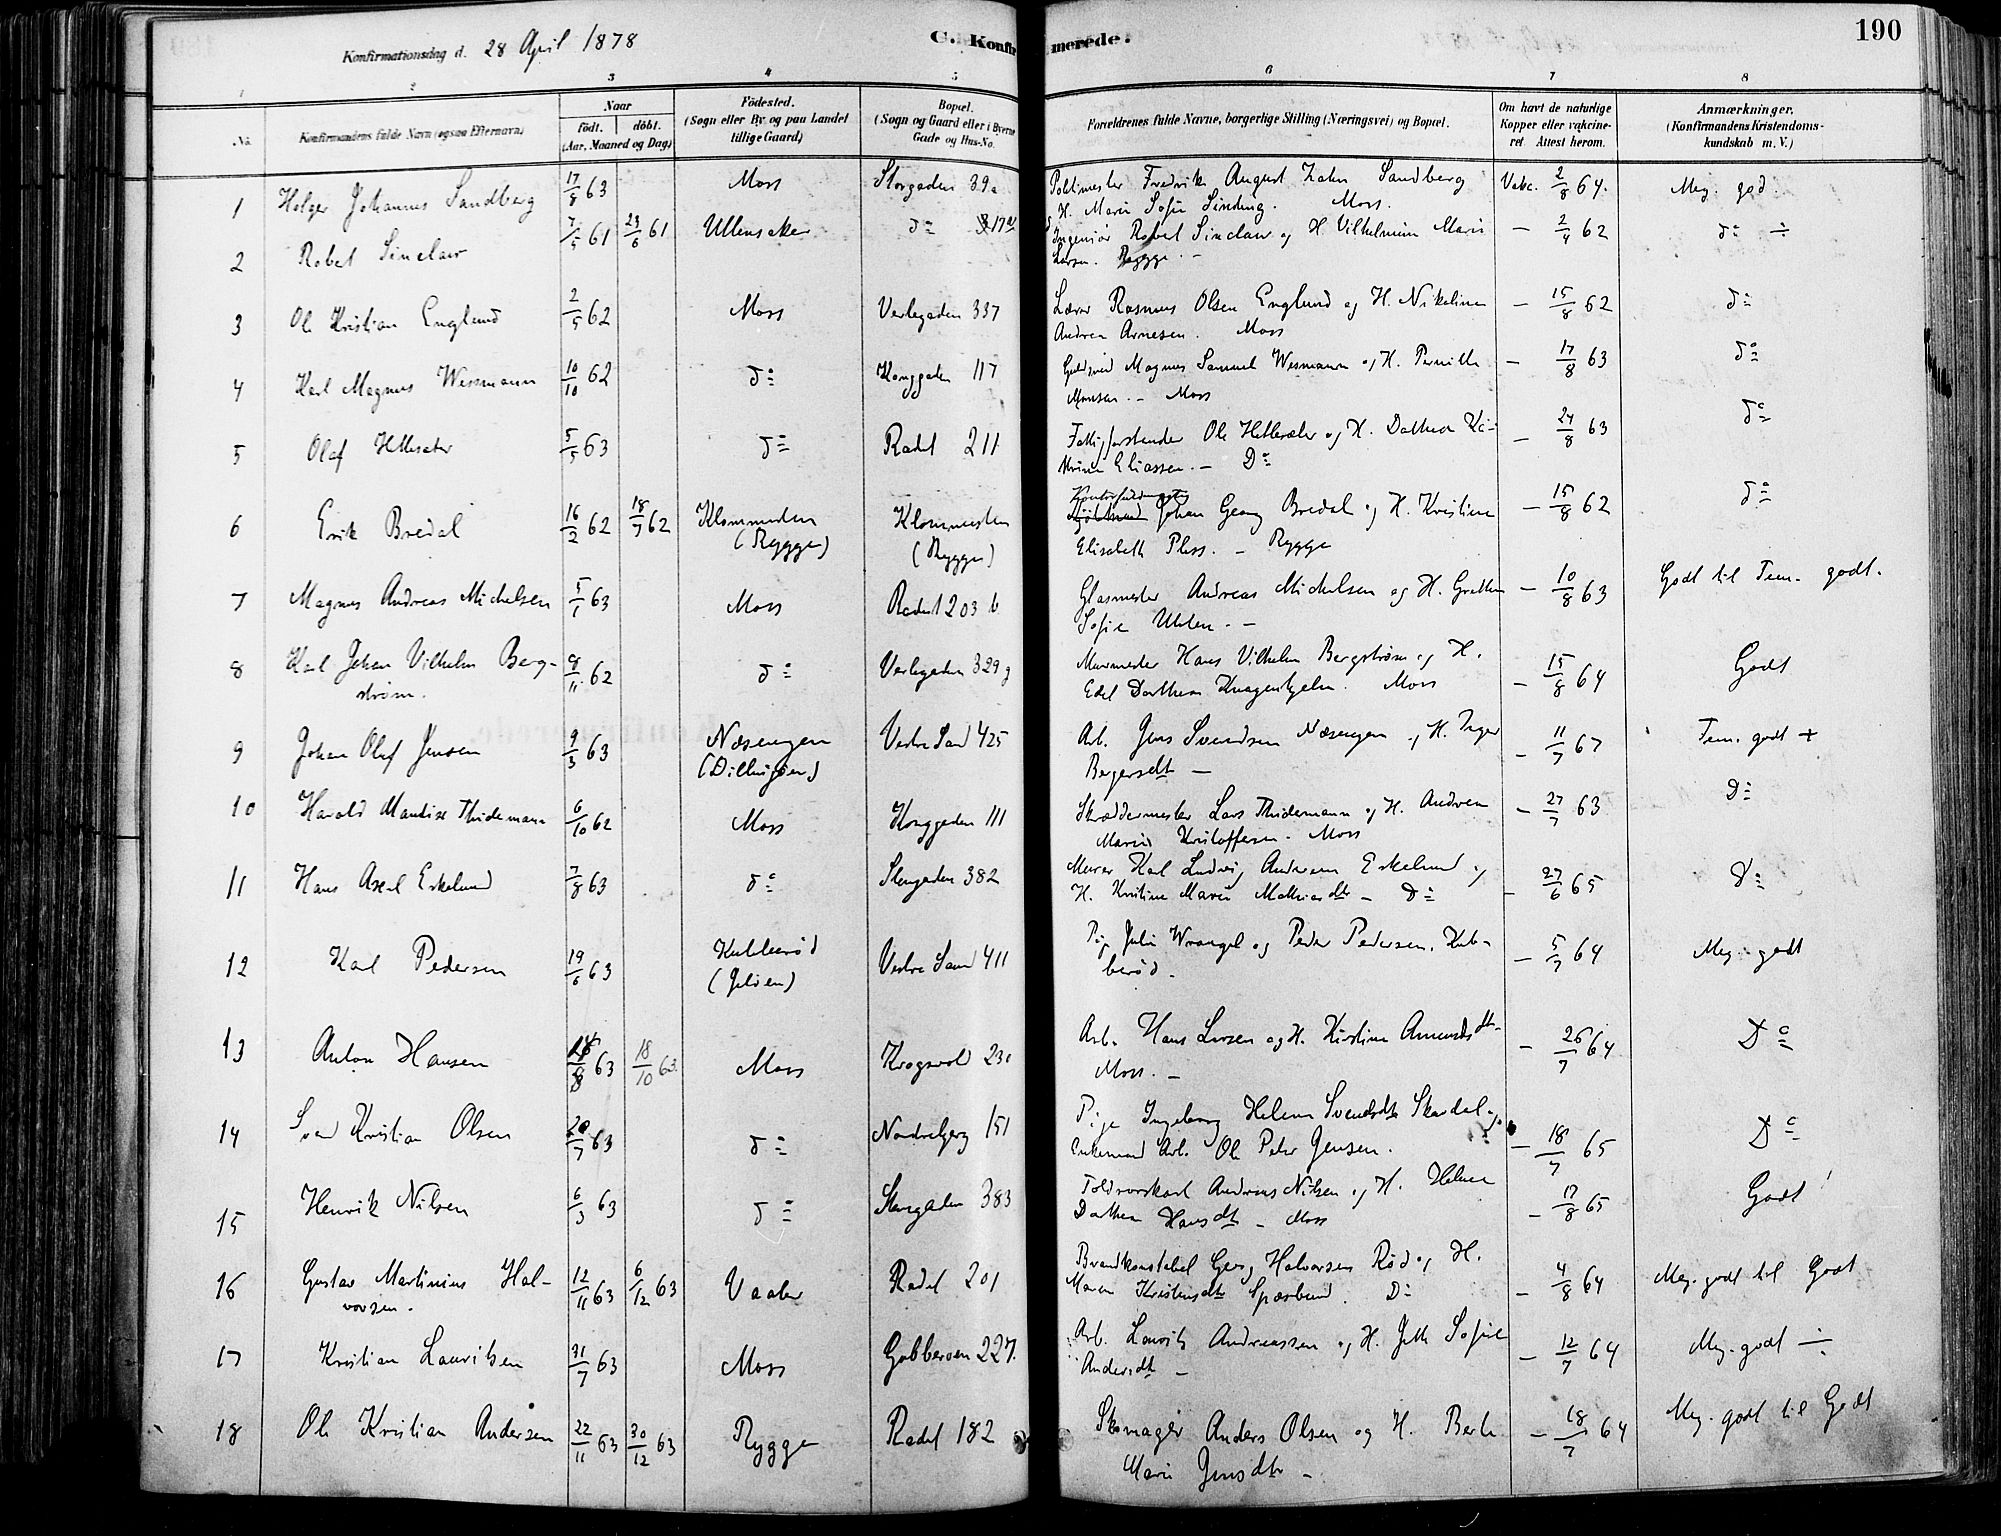 Konfirmationsdag d. 28 April 1878
C. Konfirmerede.
190
1 2 3 4 5 6 7 8
No.
Konfirmandens fulde Navn (ogsaa Efternavn)
Naar
födt. döbt.
(Aar, Maaned og Dag)
Födested.
(Sogn eller By og paa Landet
tillige Gaard)
Bopæl.
(Sogn og Gaard eller i Byerne
Gade og Hus-No.
Forældrenes fulde Navne, borgerlige Stilling (Næringsvei) og Bopæl.
Om havt de naturlige
Kopper eller vakcine-
ret. Attest herom.
Anmærkninger.
(Konfirmandens Kristendoms-
kundskab m. V.)
1 Holger Johannes Sandberg 17/8 63 Moss Storgaden 39a Politimester Fredrik August Zahn Sandberg Vakc. 2/8 64. Meg. god.
H. Marie Sofie Sinding. Moss.
2 Robet Sinclair 7/5 61 23/6 61 Ullensaker do Ingeniör Robet Sinclair og H. Vilhelmine Marie - 2/4 62 do ÷
Larsen. Rygge. -
3 Ole Kristian Englund 2/5 62 Moss Verlegaden 337 Lærer Rasmus Olsen Englund og H. Nikoline - 15/8 62 do
Andrea Arnesen. Moss
4 Karl Magnus Wessmann 10/10 62 do Konggaden 117 Guldsmed Magnus Samuel Wesmann og H. Pernille - 17/8 63 do
Monsen. - Moss
5 Olaf Hellesæter 5/5 63 do Radet 211 Fattigforstander Ole Hellesæter og H. Dorthea Ka- - 24/8 63 do
thrine Eliassen. - Do
6 Erik Bredal 16/2 62 18/7 62 Klommesten Klommesten Johan Georg Bredal og H. Kristine - 15/8 62 do
(Rygge) (Rygge) Elisabeth Pless. - Rygge
7 Magnus Andreas Michelsen 5/1 63 Moss Radet 203 b Glasmester Andreas Michelsen og H. Grethe - 10/8 63 Godt til Tem. godt.
Sofie
8 Karl Johan Vilhelm Berg- 8/11 62 do Verlegaden 329g Murmester Hans Vilhelm Bergström og H. - 15/8 64 Godt
ström. Edel Dorthea Knagenhjelm. Moss
9 Johan Olaf Jensen 9/3 63 Næsengen Vestre Sand 425 Arb. Jens Svendsen Næsengen og H. Inger - 11/7 67 Tem. godt +
(Dillingöen) Bergersdt -
10 Harald Mauritz Thidemann 6/10 62 Moss Konggaden 111 Skræddermester Lars Thidemann og H. Andrea - 27/7 63 Do
Marie Kristoffersen. Moss
11 Hans Axel Eskelund 7/8 63 do Stengaden 382 Murer Karl Ludvig Andersen Eskelund og - 27/6 65 Do
H. Kristine Marie Mathiasdtr - Do
12 Karl Pedersen 19/6 63 Kubberöd Vestre Sand 411 Pige Julie Wrangel og Peder Pedersen. Kub- - 5/7 64 Meg. godt
(Jelöen) beröd.
13 Anton Hansen 63 18/10 63. Moss Krogsvold 230 Arb. Hans Larsen og H. Kirstine - 26/7 64 Do
Moss. -
14 Sven Kristian Olsen 20/7 63 do Nordrebjerg 151 Pige Ingeborg Helene Svendsdtr Skardal og - 18/7 65 Do
Enkemand Arb. Ole Peter Jensen.
15 Henrik Nilsen 6/3 63 do Stengaden 383 Toldrorskarl Andreas Nilsen og H. Helene - 17/8 65 Godt
Dorthea Hansdt - Moss
16 Gustav Martinius Hal- 12/11 63 6/12 63 Vaaler Radet 201 Brandkonstabel Georg Halvorsen Röd og H. - 4/8 64 Meg. godt til Godt
vorsen. Maren Kristensdtr Spærbund. Do
17 Kristian Lauritsen 31/7 63 Moss Gabberöen 227. Arb. Laurits Andreassen og H. Jette Sofie - 12/7 64 Meg. godt ÷
Andersdt -
18 Ole Kristian Andersen 22/11 63 30/12 63 Rygge Radet 182 Skomager Anders Olsen og H. Berte - 18/7 64 Meg. godt til Godt
Marie Jensdtr -